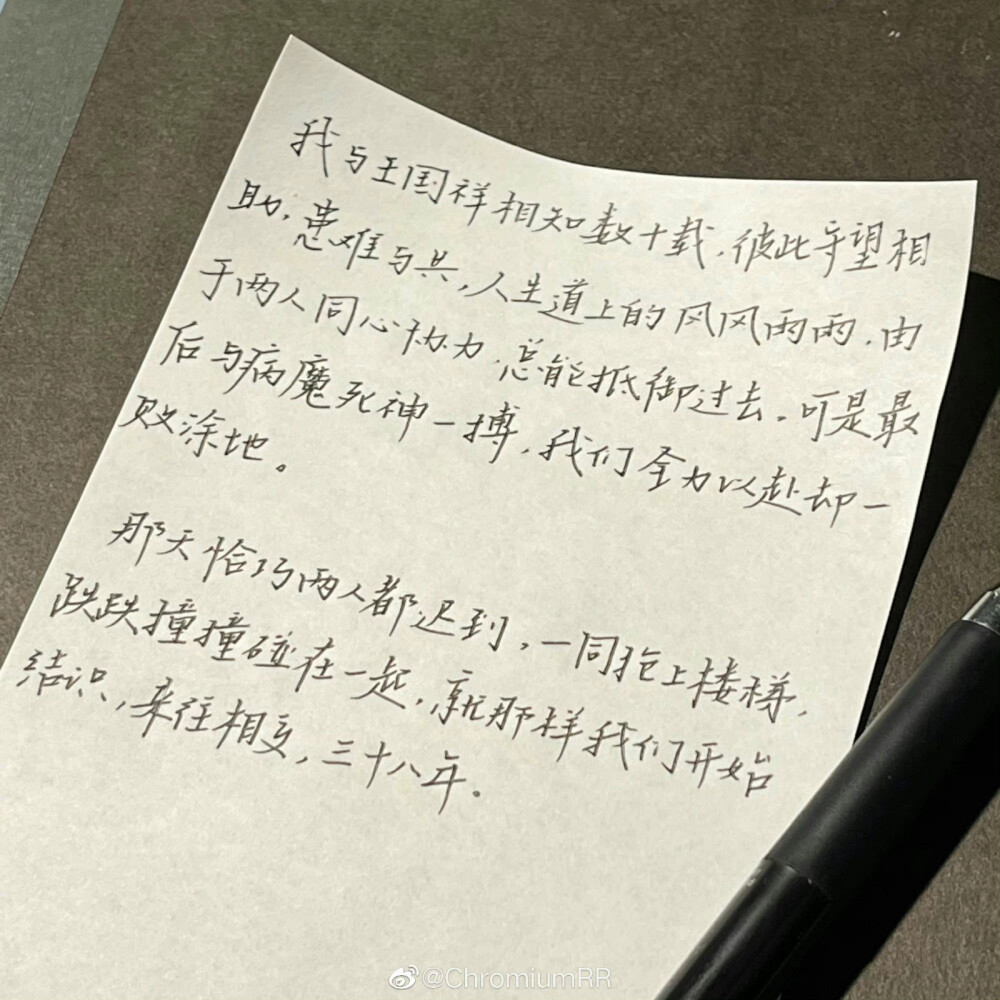 我与王国祥相知数十载，彼此守望相
助，患难与共，人生道上的风风雨雨，由
于两人同心协力，总能抵御过去。可是最
后与病魔死神一搏，我们全力以赴却一
败涂地。
那天恰巧两人都迟到，一同抢上楼梯，
跌跌撞撞碰在一起，就那样我们开始
结识，来往相交，三十八年。
@ChromiumRR